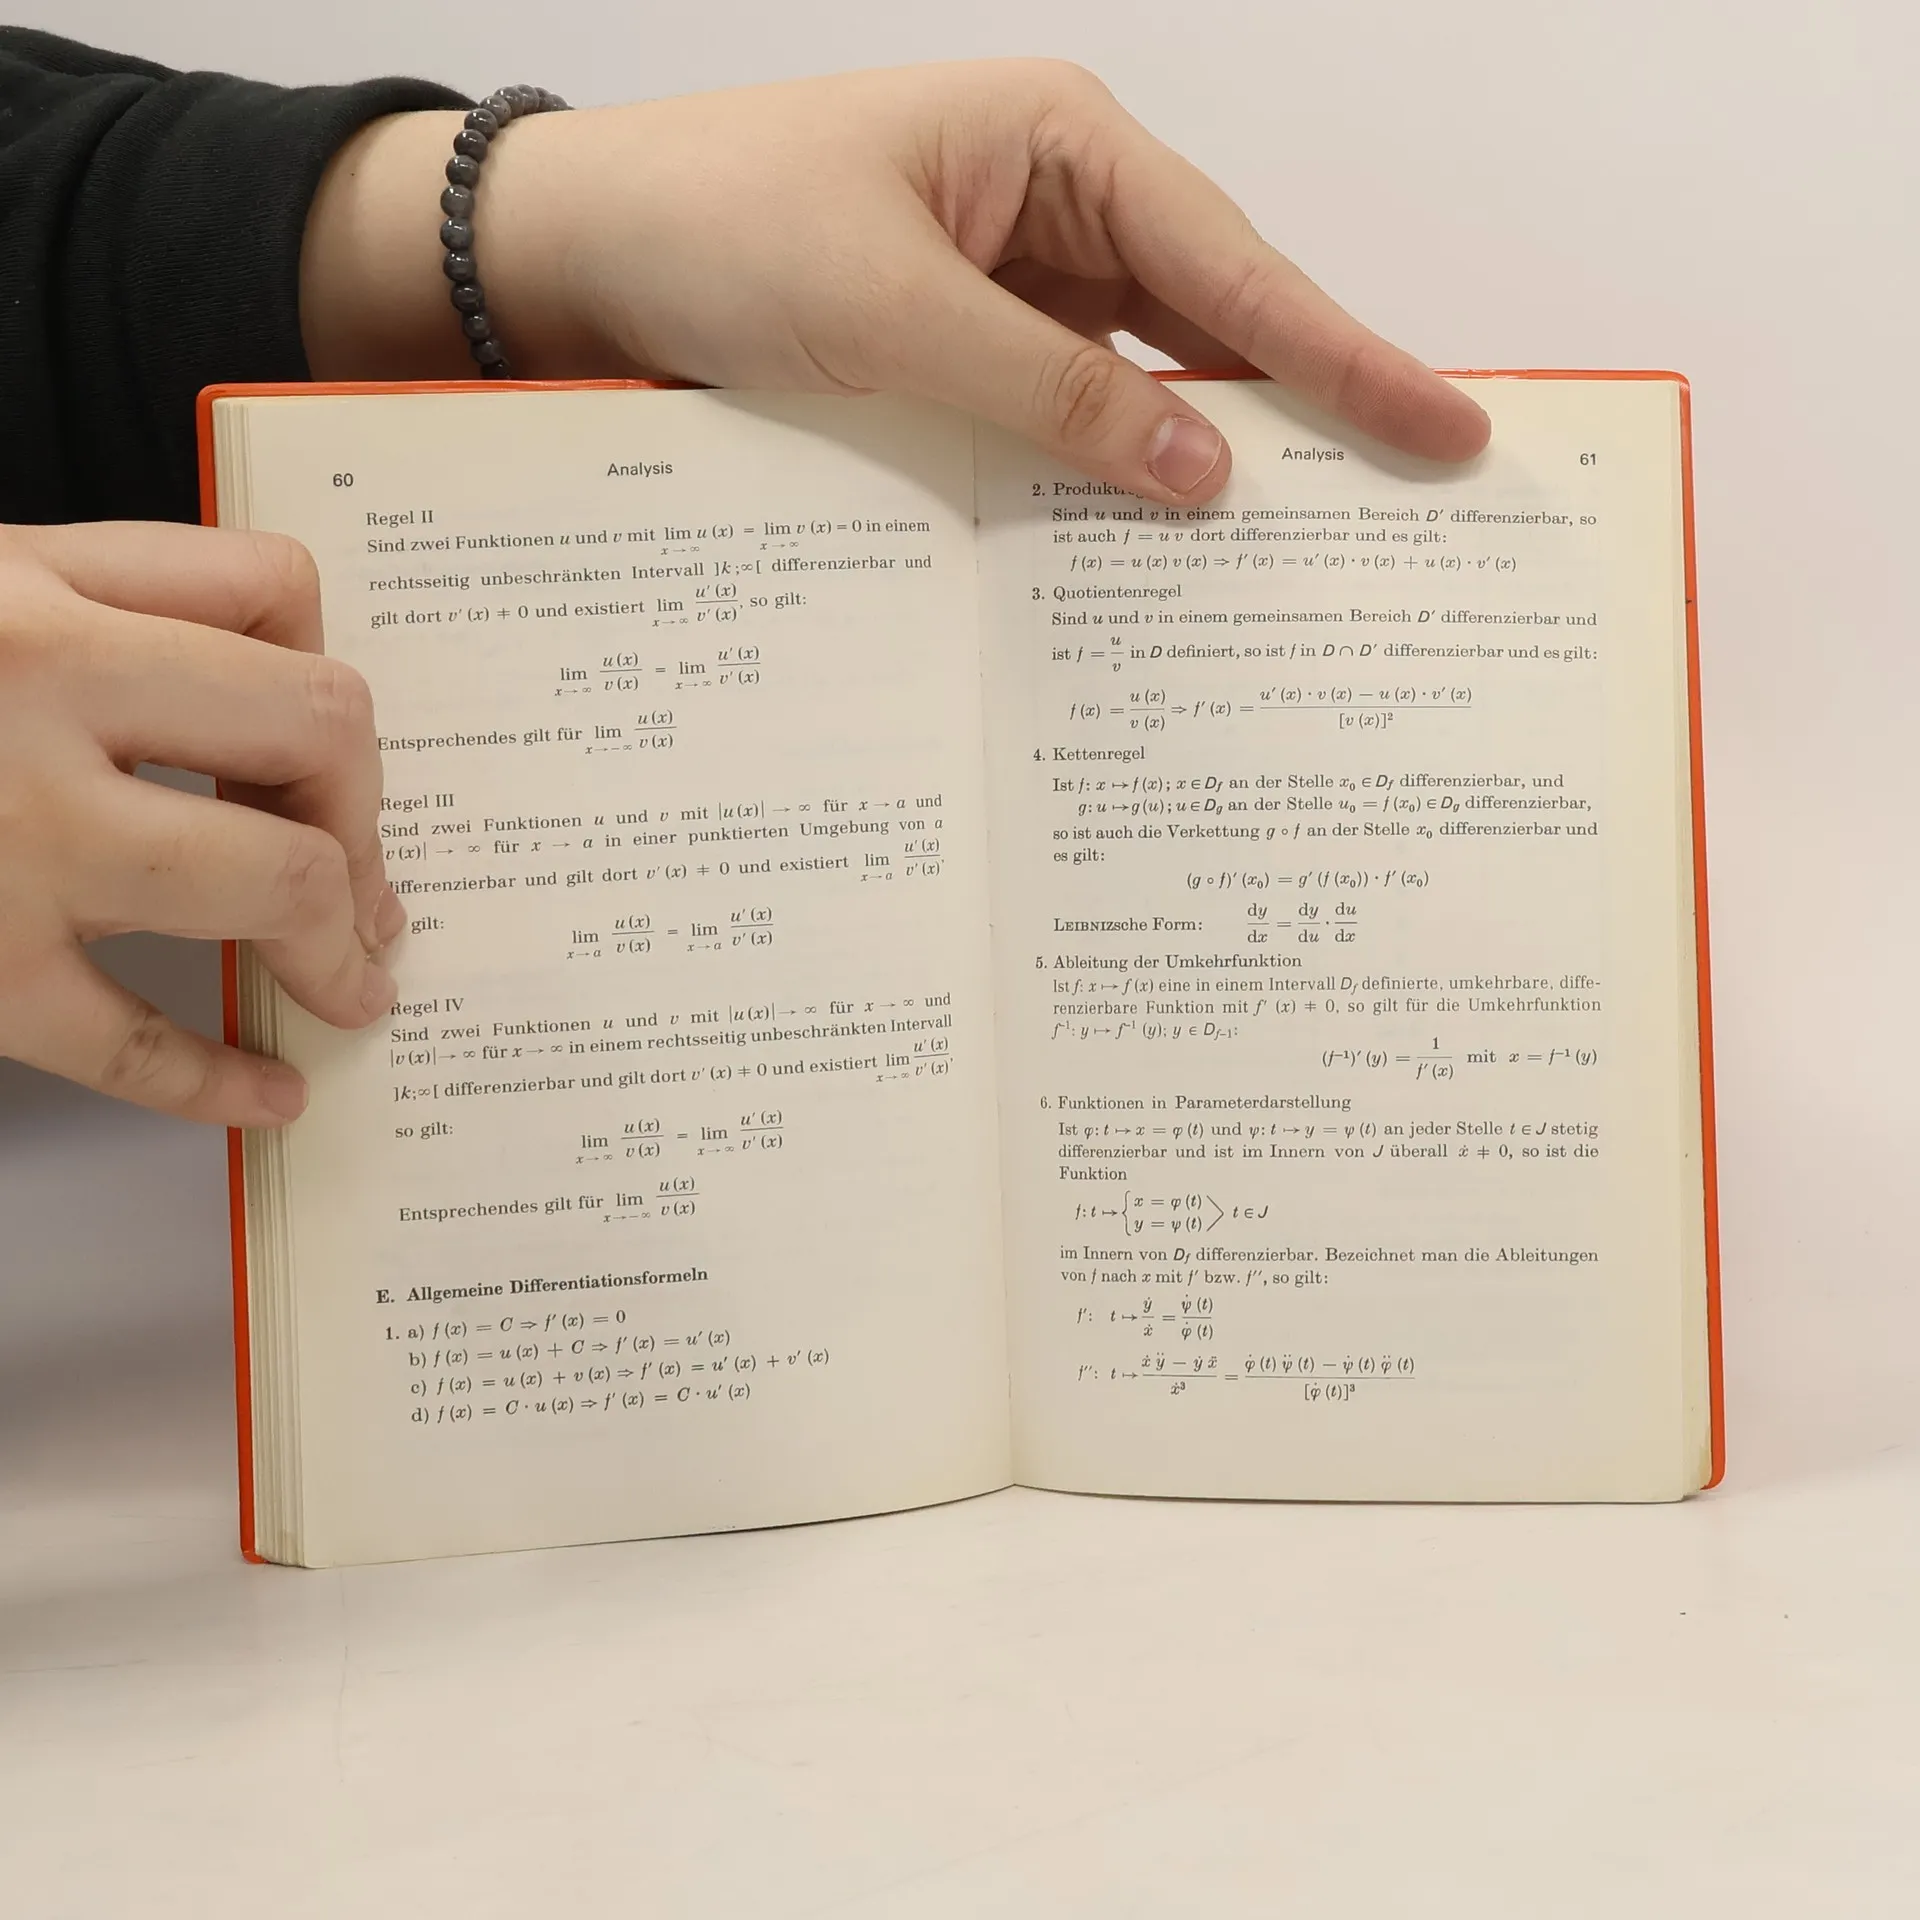 60
Analysis
Regel II
Sind zwei Funktionen u und v mit lim u (x) = lim v (x) = 0 in einem
x → ∞ x → ∞
rechtsseitig unbeschränkten Intervall ]k;∞[ differenzierbar und
gilt dort v' (x) ≠ 0 und existiert lim x → ∞ u' (x) / v' (x), so gilt:
lim x → ∞ u (x) / v (x) = lim x → ∞ u' (x) / v' (x)
Entsprechendes gilt für lim x → − ∞ u (x) / v (x)
Regel III
Sind zwei Funktionen u und v mit |u (x)| → ∞ für x → a und
v (x)| → ∞ für x → a in einer punktierten Umgebung von a
differenzierbar und gilt dort v' (x) ≠ 0 und existiert lim x → a u' (x) / v' (x),
gilt:
lim x → a u (x) / v (x) = lim x → a u' (x) / v' (x)
Regel IV
Sind zwei Funktionen u und v mit |u (x)| → ∞ für x → ∞ und
|v (x)| → ∞ für x → ∞ in einem rechtsseitig unbeschränkten Intervall
]k;∞[ differenzierbar und gilt dort v' (x) ≠ 0 und existiert lim x → ∞ u' (x) / v' (x),
so gilt:
lim x → ∞ u (x) / v (x) = lim x → ∞ u' (x) / v' (x)
Entsprechendes gilt für lim x → − ∞ u (x) / v (x)
E. Allgemeine Differentiationsformeln
1. a) f (x) = C ⇒ f' (x) = 0
b) f (x) = u (x) + C ⇒ f' (x) = u' (x)
c) f (x) = u (x) + v (x) ⇒ f' (x) = u' (x) + v' (x)
d) f (x) = C · u (x) ⇒ f' (x) = C · u' (x)
Analysis
61
2.
Sind u und v in einem gemeinsamen Bereich D' differenzierbar, so
ist auch f = u v dort differenzierbar und es gilt:
f (x) = u (x) v (x) ⇒ f' (x) = u' (x) · v (x) + u (x) · v' (x)
3. Quotientenregel
Sind u und v in einem gemeinsamen Bereich D' differenzierbar und
ist f = u / v in D definiert, so ist f in D ∩ D' differenzierbar und es gilt:
f (x) = u (x) / v (x) ⇒ f' (x) = u' (x) · v (x) − u (x) · v' (x) / [v (x)]²
4. Kettenregel
Ist f: x ↦ f (x); x ∈ Df an der Stelle x₀ ∈ Df differenzierbar, und
g: u ↦ g (u); u ∈ Dg an der Stelle u₀ = f (x₀) ∈ Dg differenzierbar,
so ist auch die Verkettung g ∘ f an der Stelle x₀ differenzierbar und
es gilt:
(g ∘ f)' (x₀) = g' (f (x₀)) · f' (x₀)
LEIBNIZsche Form: dy / dx = dy / du · du / dx
5. Ableitung der Umkehrfunktion
Ist f: x ↦ f (x) eine in einem Intervall Df definierte, umkehrbare, diffe-
renzierbare Funktion mit f' (x) ≠ 0, so gilt für die Umkehrfunktion
f⁻¹: y ↦ f⁻¹ (y); y ∈ Df−1:
(f⁻¹)' (y) = 1 / f' (x) mit x = f⁻¹ (y)
6. Funktionen in Parameterdarstellung
Ist φ: t ↦ x = φ (t) und ψ: t ↦ y = ψ (t) an jeder Stelle t ∈ J stetig
differenzierbar und ist im Innern von J überall ẋ ≠ 0, so ist die
Funktion
f: t ↦ { x = φ (t)
y = ψ (t) ⟩ t ∈ J
im Innern von Df differenzierbar. Bezeichnet man die Ableitungen
von f nach x mit f' bzw. f'', so gilt:
f': t ↦ ẏ / ẋ = ψ̇ (t) / φ̇ (t)
f'': t ↦ ẋ ÿ − ẏ ẍ / ẋ³ = φ̇ (t) ψ̈ (t) − ψ̇ (t) φ̈ (t) / [φ̇ (t)]³